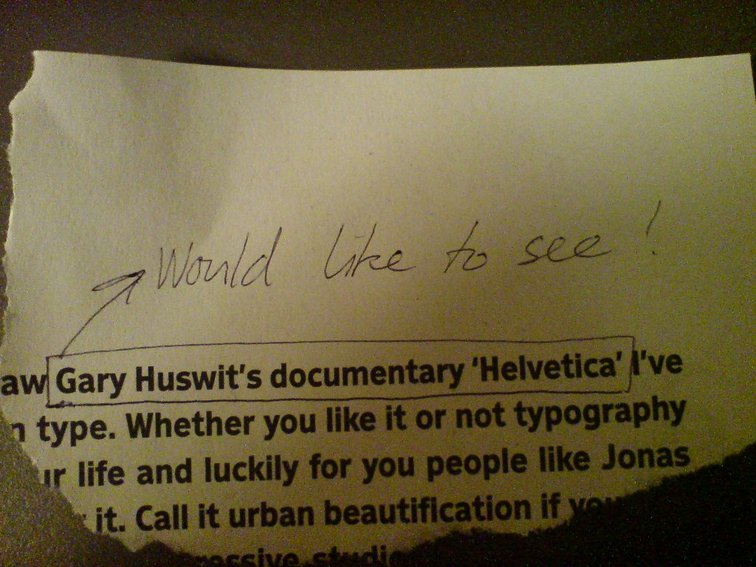 Would like to see!
aw Gary Huswit's documentary 'Helvetica' I've
n type. Whether you like it or not typography
ur life and luckily for you people like Jonas
it. Call it urban beautification if